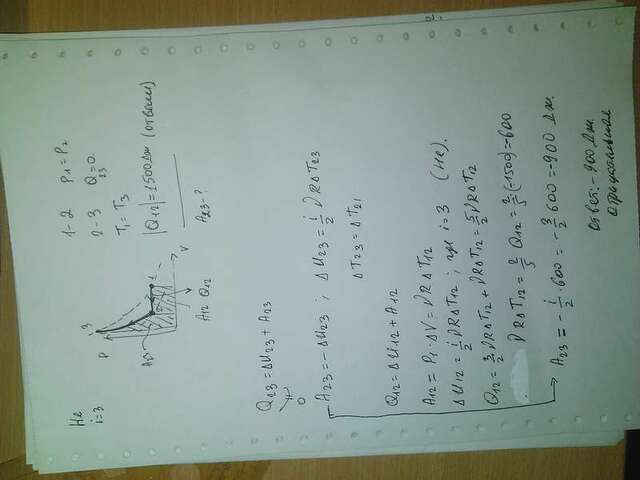 He
i=3
P
3
2
1
V
A23
A12 Q12
1-2 P1=P2
2-3 Q23=0
T1=T3
|Q12|=1500 Дж (отвели)
A23-?
Q23=ΔU23+A23
0
A23=-ΔU23; ΔU23=i/2 νRΔT23
ΔT23=ΔT21
Q12=ΔU12+A12
A12=P1·ΔV=νRΔT12
ΔU12=i/2 νRΔT12; где i=3 (He).
Q12=3/2 νRΔT12+νRΔT12=5/2 νRΔT12
νRΔT12=2/5 Q12=2/5(-1500)=600
A23=-i/2·600=-3/2 600=-900 Дж.
Ответ:-900 Дж.
отрицательная